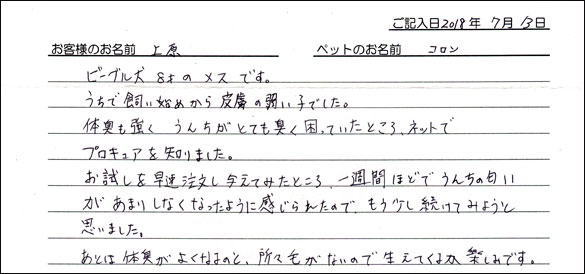 ご記入日2018年 7月 13日
お客様のお名前 上原 ペットのお名前 コロン
ビーグル犬 8才の メス です。
うちで 飼い始めから 皮膚の弱い子でした。
体臭も強く うんちがとても臭く困っていたところ、ネットで
プロキュアを知りました。
お試しを早速注文し与えてみたところ、一週間ほどでうんちの匂い
があまりしなくなったように感じられたので、もう少し続けてみようと
思いました。
あとは体臭がよくなるのと、所々毛がないので生えてくるか楽しみです。